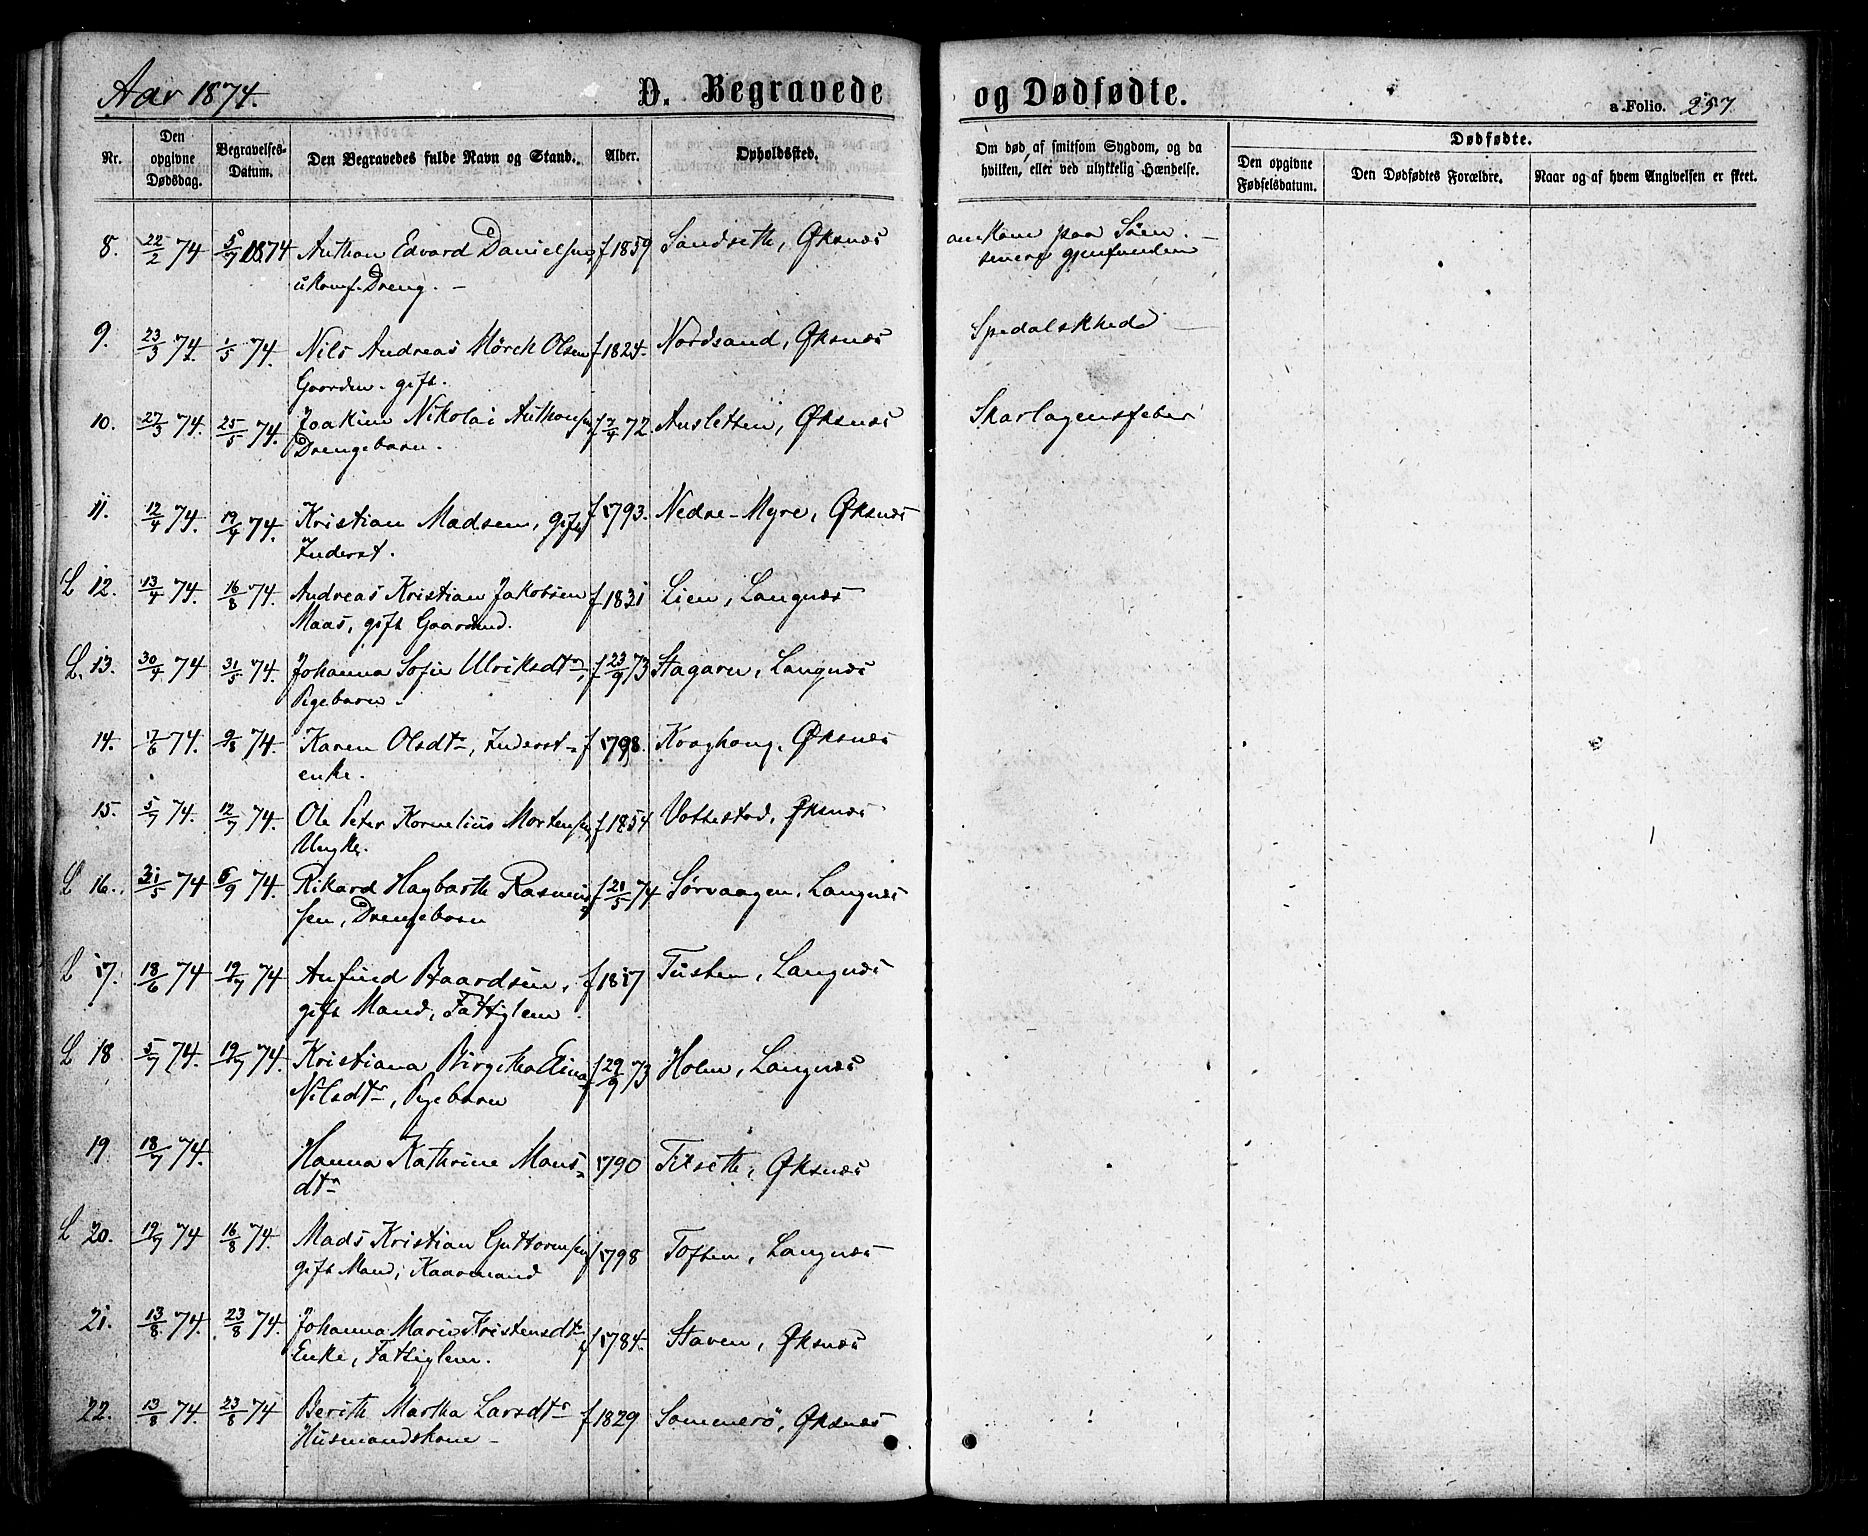 Aar 1874.
D. Begravede og Dødfødte.
a. Folio. 257.
Nr.
Den opgivne Dødsdag.
Begravelses-Datum.
Den Begravedes fulde Navn og Stand.
Alder.
Opholdssted.
Om død af smitsom Sygdom, og da hvilken, eller ved ulykkelig Hændelse.
Dødfødte.
Den opgivne Fødselsdatum.
Den Dødfødtes Forældre.
Naar og af hvem Angivelsen er skeet.
8. 22/2 74 5/7 1874 Anthon Edvard Danielsen, f 1859 Sandseth, Øksnæs omkom paa Søen.
ukonf. Dreng. – senere gjenfunden
9. 23/3 74. 1/5 74. Nils Andreas Mörch Olsen f 1824. Nordsand, Øksnæs Spedalskhed
Gaardm. gift.
10. 27/3 74. 25/5 74. Joakim Nikolai Anthonsen f 7/4 72. Ausletten, Øksnæs Skarlagensfeber
Drengebarn.
11. 12/4 74. 19/4 74. Kristian Madsen, gift f 1793. Nedre-Myre, Øksnæs
Inderst.
L 12. 13/4 74. 16/8 74. Andreas Kristian Jakobsen f 1831 Lien, Langnæs
Maas, gift Gaardmd.
L. 13. 30/4 74 31/5 74. Johanna Sofie Ulriksdtr, f 23/9 73 Stagaren, Langnæs
Pigebarn.
14. 7/6 74. 9/8 74. Karen Olsdtr, Inderst- f 1798. Kraghaug, Øksnæs
enke.
15. 5/7 74. 12/7 74. Ole Peter Kornelius Mortensen, f 1854 Vottestad, Øksnæs
Ungkr.
L 16. 31/5 74 6/9 74. Rikard Hagbarth Rasmus- f 21/5 74 Sørvaagen, Langnæs
sen, Drengebarn
L 17. 18/6 74 19/7 74 Anfind Baardsen, f 1817 Tusten, Langnæs
gift Mand, Fattiglem
L 18 5/7 74. 19/7 74. Kristiana Birgitha Elina f 29/9 73 Holm, Langnæs
Nilsdtr, Pigebarn
19. 18/7 74. Hanna Kathrine Mons- 1790 Tixseth, Øksnæs
dtr
L 20. 19/7 74 16/8 74. Mads Kristian Guttormsen f 1798 Toften, Langnæs
gift Mand, Kaarmand
21. 13/8 74. 23/8 74. Johanna Marie Kristensdtr f 1784. Staven, Øksnæs
Enke, Fattiglem.
22. 13/8 74 23/8 74 Berith Martha Larsdtr f 1829 Sommerö, Øksnæs
Husmandskone –